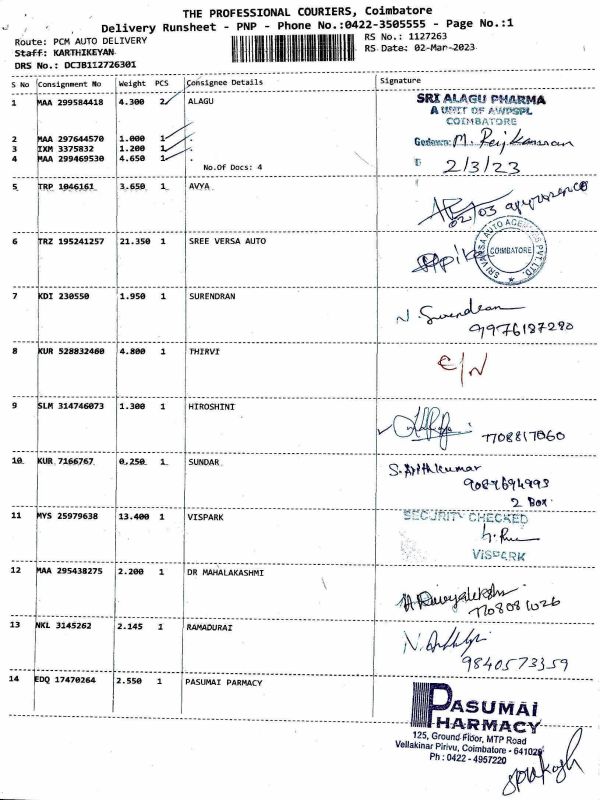 THE PROFESSIONAL COURIERS, Coimbatore
Delivery Runsheet - PNP - Phone No.:0422-3505555 - Page No.:1
Route: PCM AUTO DELIVERY
Staff: KARTHIKEYAN
DRS No.: DCJB112726301
RS No.: 1127263
RS Date: 02-Mar-2023
S No Consignment No Weight PCS Consignee Details Signature
1 MAA 299584418 4.300 2 ALAGU
SRI ALAGU PHARMA
A UNIT OF AWPSPL
COIMBATORE
2 MAA 297644570 1.000 1
3 IXM 3375832 1.200 1
4 MAA 299469530 4.650 1
No.Of Docs: 4
2/3/23
5 TRP 1046161 3.650 1 AVYA
02/03
6 TRZ 195241257 21.350 1 SREE VERSA AUTO
COIMBATORE
7 KDI 230550 1.950 1 SURENDRAN
N. Surendran
9976187280
8 KUR 528832460 4.800 1 THIRVI
9 SLM 314746073 1.300 1 HIROSHINI
7708817060
10 KUR 7166767 0.250 1 SUNDAR
S. Arithkumar
9087694993
2 Box
11 MYS 25979638 13.400 1 VISPARK
SECURITY CHECKED
VISPARK
12 MAA 295438275 2.200 1 DR MAHALAKASHMI
7708081026
13 NKL 3145262 2.145 1 RAMADURAI
9840573359
14 EDQ 17470264 2.550 1 PASUMAI PARMACY
PASUMAI
PHARMACY
125, Ground Floor, MTP Road
Vellakinar Pirivu, Coimbatore - 641029
Ph : 0422 - 4957220